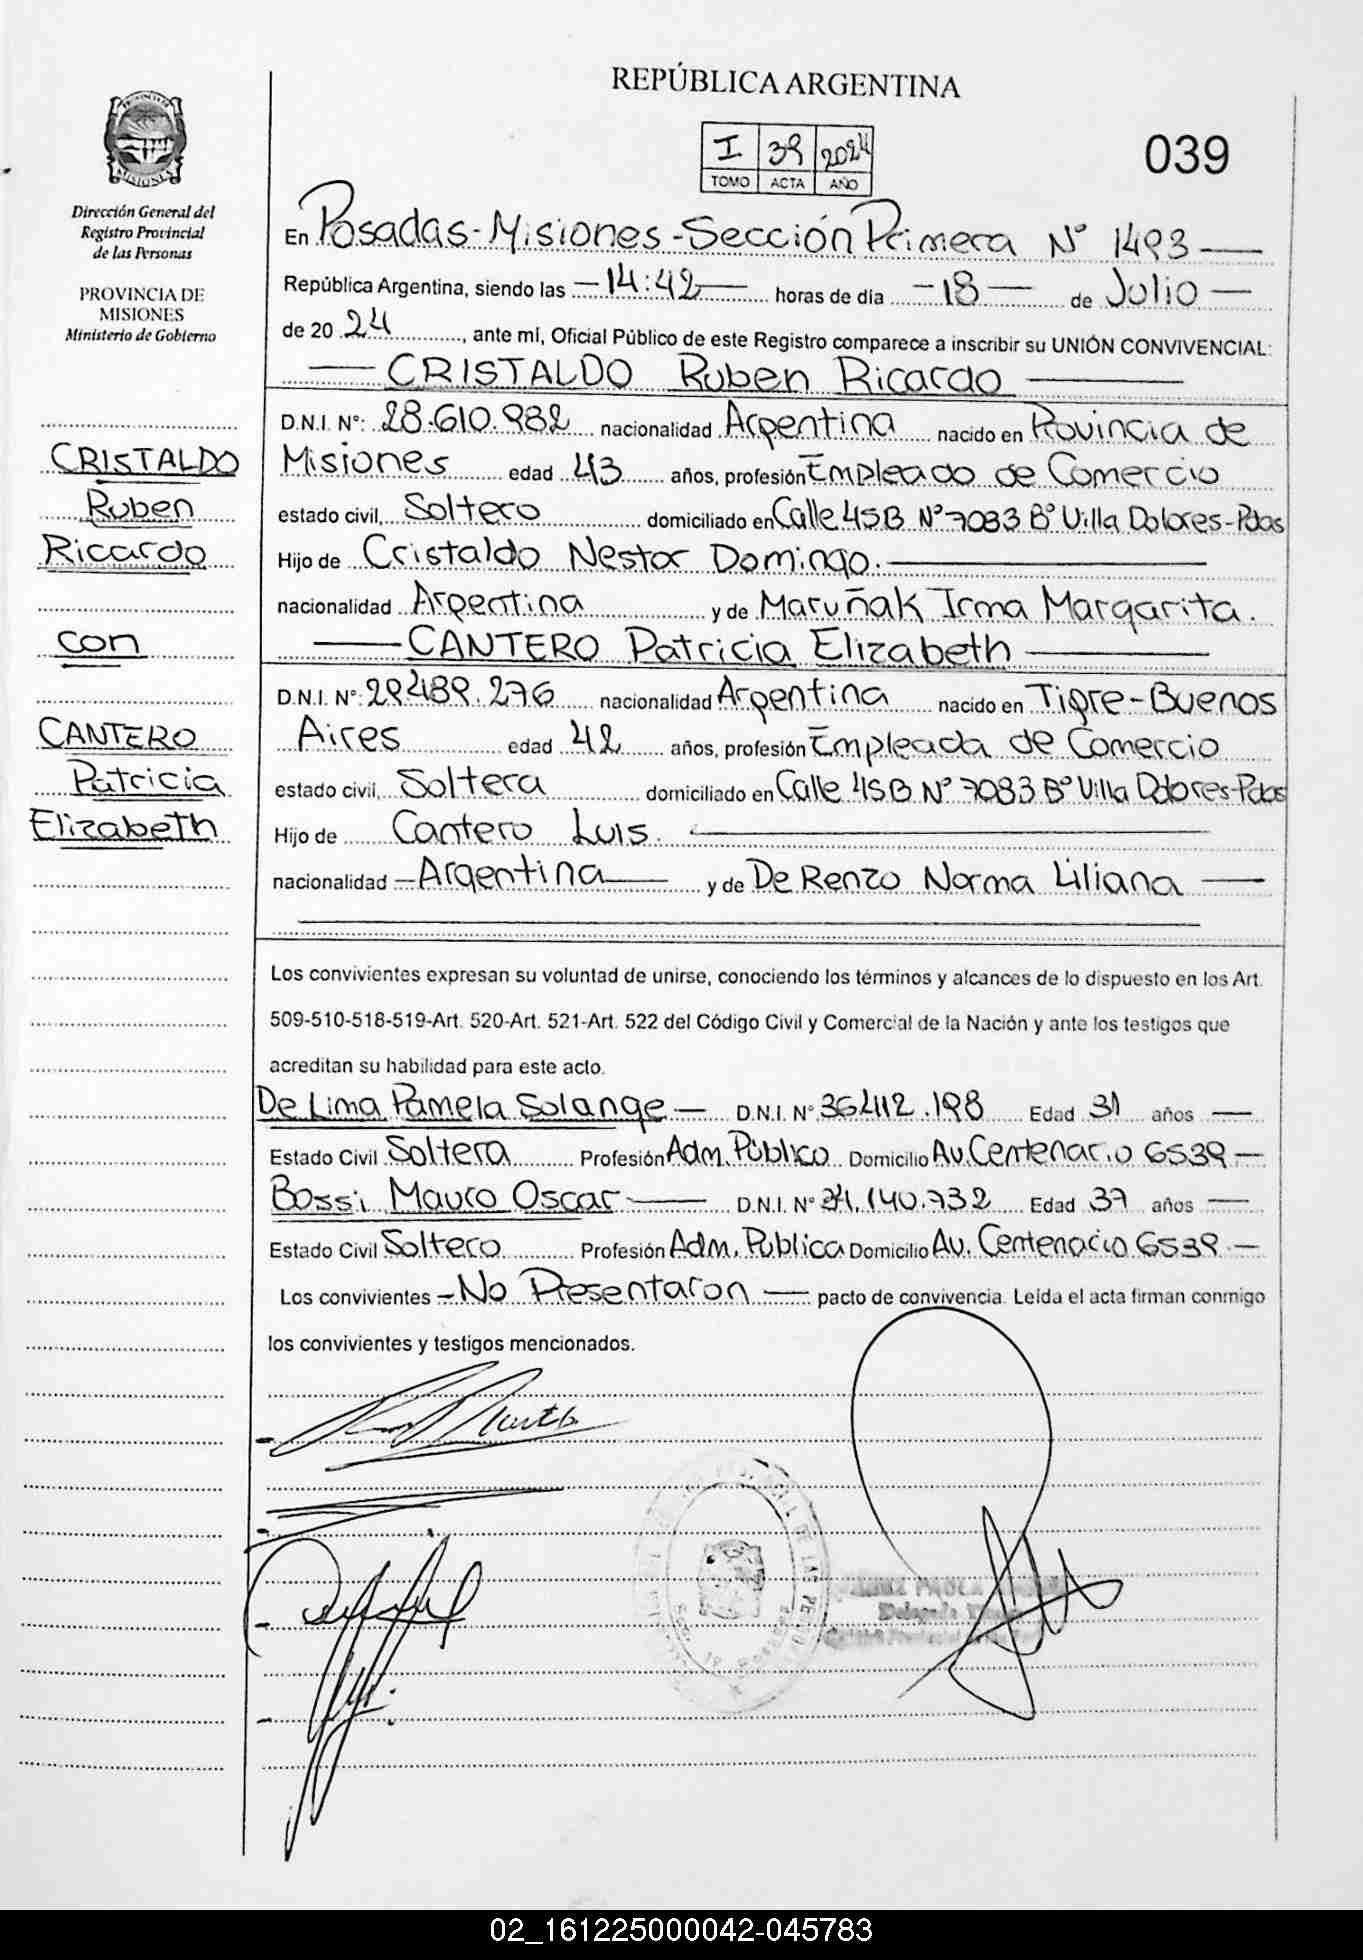 REPÚBLICA ARGENTINA
I 39 2024
TOMO ACTA AÑO
039
MISIONES
Dirección General del
Registro Provincial
de las Personas
PROVINCIA DE
MISIONES
Ministerio de Gobierno
CRISTALDO
Ruben
Ricardo
con
CANTERO
Patricia
Elizabeth
En Posadas-Misiones-Sección Primera N° 1493
República Argentina, siendo las 14:42 horas de día 18 de Julio
de 20 24, ante mí, Oficial Público de este Registro comparece a inscribir su UNIÓN CONVIVENCIAL:
CRISTALDO Ruben Ricardo
D.N.I. N°: 28.610.982 nacionalidad Argentina nacido en Provincia de
Misiones edad 43 años, profesión Empleado de Comercio
estado civil, Soltero domiciliado en Calle 45B N° 7083 B° Villa Dolores-Pdas
Hijo de Cristaldo Nestor Domingo.
nacionalidad Argentina y de Maruñak Irma Margarita.
CANTERO Patricia Elizabeth
D.N.I. N° 29.489.276 nacionalidad Argentina nacido en Tigre-Buenos
Aires edad 42 años, profesión Empleada de Comercio
estado civil, Soltera domiciliado en Calle 45B N° 7083 B° Villa Dolores-Pdas
Hijo de Cantero Luis.
nacionalidad Argentina y de De Renzo Norma Liliana
Los convivientes expresan su voluntad de unirse, conociendo los términos y alcances de lo dispuesto en los Art.
509-510-518-519-Art. 520-Art. 521-Art. 522 del Código Civil y Comercial de la Nación y ante los testigos que
acreditan su habilidad para este acto.
De Lima Pamela Solange D.N.I. N° 36.412.198 Edad 31 años
Estado Civil Soltera Profesión Adm. Público Domicilio Av. Centenario 6539
Bossi Mauro Oscar D.N.I. N° 34.140.732 Edad 37 años
Estado Civil Soltero Profesión Adm. Publica Domicilio Av. Centenario 6539
Los convivientes No Presentaron pacto de convivencia. Leída el acta firman conmigo
los convivientes y testigos mencionados.
02_161225000042-045783